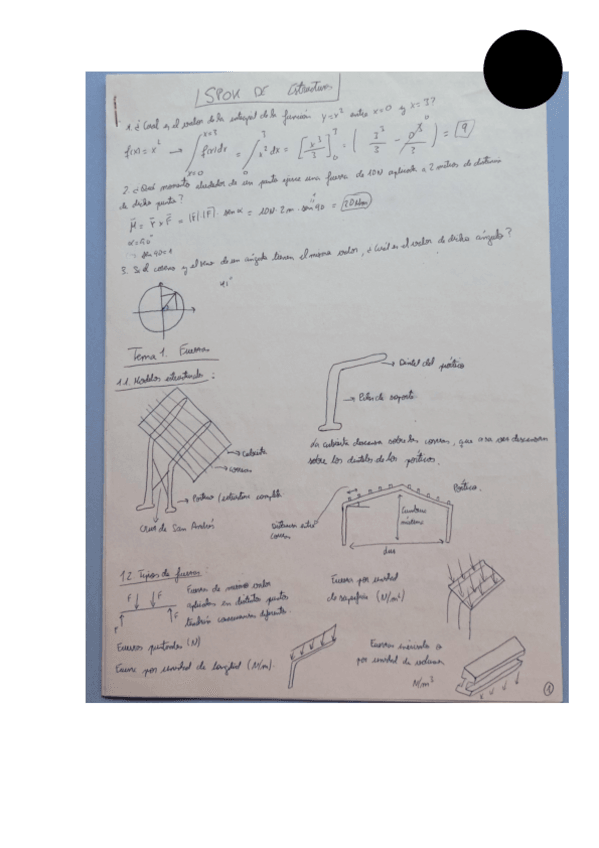 SPOK DE Estructuras
1. ¿Cual es el valor de la integral de la función y=x² entre x=0 y x=3?
f(x)=x² → ∫ x=0 x=3 f(x)dx = ∫ 0 3 x² dx = [x³/3] 0 3 = (3³/3 - 0³/3) = 9
2. ¿Qué momento alrededor de un punto ejerce una fuerza de 10N aplicada a 2 metros de distancia
de dicho punto?
M = r x F = |r| |F| · sen α = 10N · 2m · sen 90 = 20Nm
α=90°
sen 90=1
3. Si el coseno y el seno de un ángulo tienen el mismo valor, ¿Cuál es el valor de dicho ángulo?
45°
Tema 1. Fuerzas
1.1. Modelos estructurales:
→ Dintel del pórtico
→ Pilar de soporte
La cubierta descansa sobre las correas, que a su vez descansan
sobre los dinteles de los pórticos.
→ Cubierta
→ correas
→ Pórtico / estructura completa
Cruz de San Andrés
Distancia entre
correas
Pórtico.
Cumbrera
máxima
luz
1.2 Tipos de fuerzas:
F F
F F
Fuerzas de mismo valor
aplicadas en distintos puntos
tendrán consecuencias diferentes.
Fuerzas puntuales (N)
Fuerza por unidad de longitud (N/m).
Fuerza por unidad
de superficie (N/m²)
Fuerzas
por unidad de volumen
N/m³
1